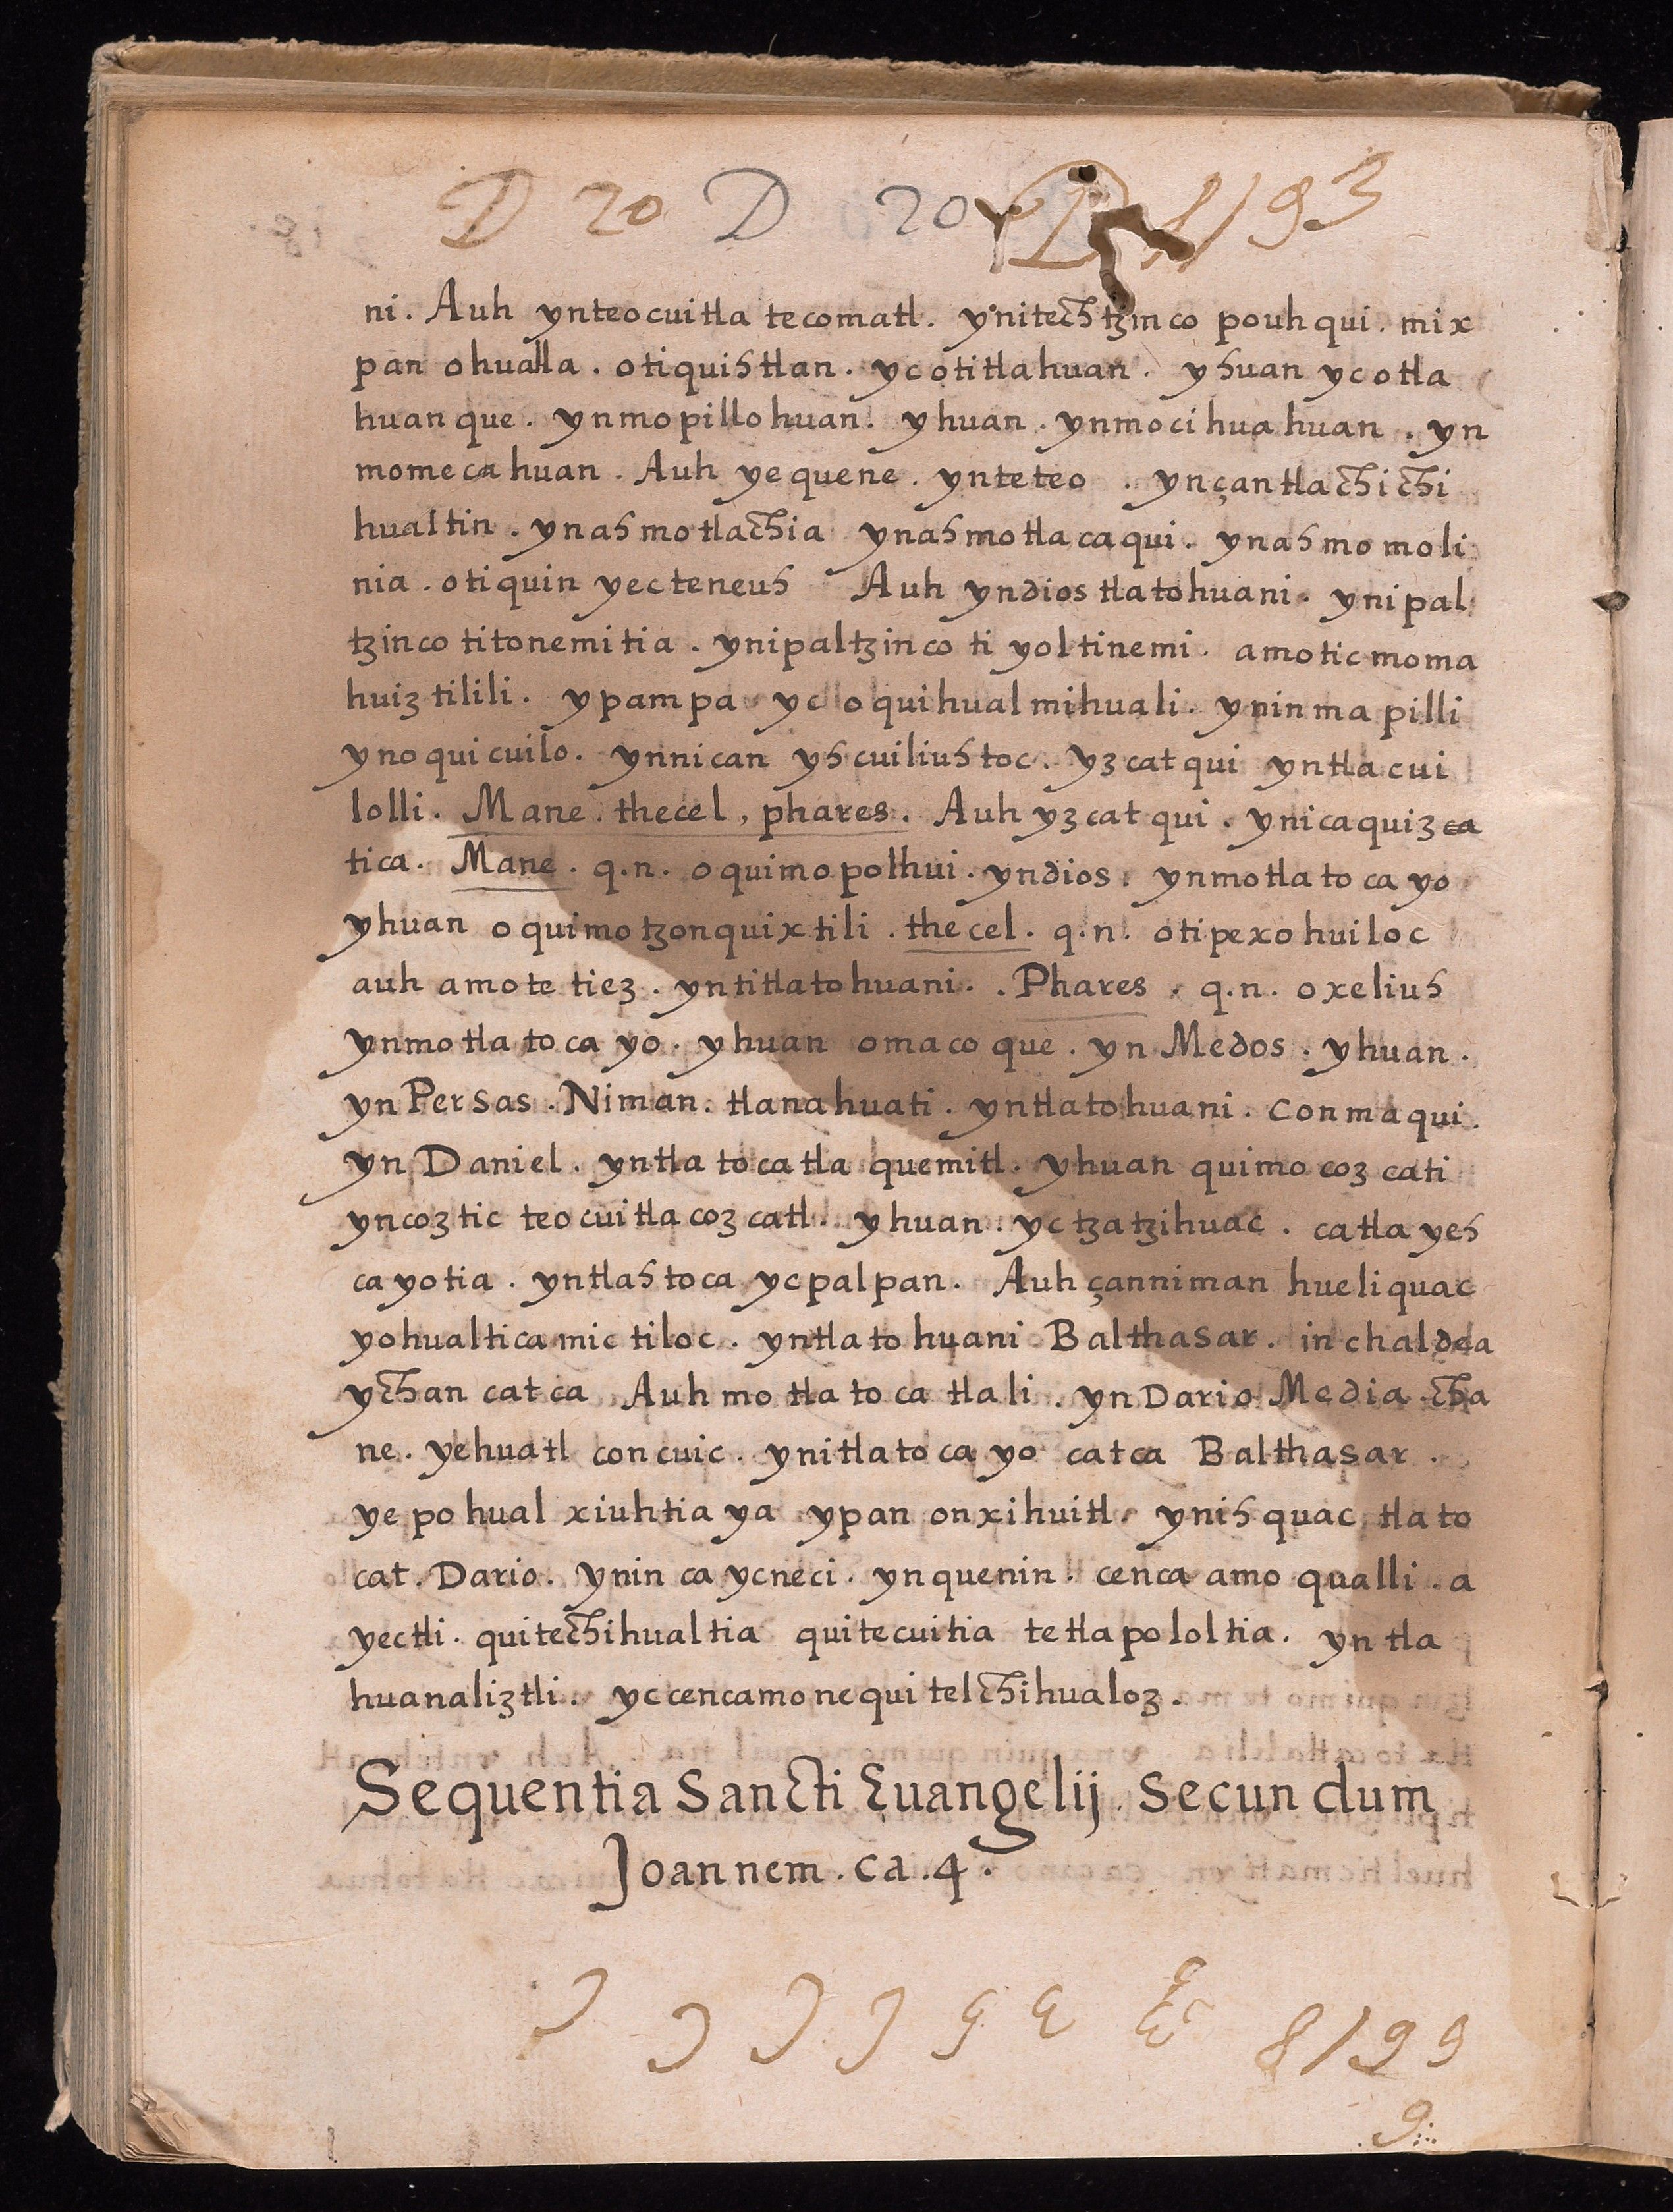 D 20 D 20
ni. Auh ynteocuitla tecomatl. ynitechtzinco pouhqui. mix
pan ohualla. otiquishtlan. ycotitlahuan. yhuan ycotla
huanque. ynmopillohuan. yhuan. ynmocihuahuan. yn
momecahuan. Auh yequene. ynteteo. ynçantlachichi
hualtin. ynahmotlachia ynahmotlacaqui. ynahmomoli
nia. otiquin yecteneuh Auh yndios tlatohuani. ynipal
tzinco titonemitia. ynipaltzinco ti yoltinemi. amoticmoma
huiztilili. ypampa yc oquihualmihuali. yninmapilli
ynoquicuilo. ynnican yhcuiliuhtoc. yzcatqui yntlacui
lolli. Mane. thecel, phares. Auh yzcatqui. ynicaquizca
tica. Mane. q.n. oquimopolhui. yndios. ynmotlatocayo
yhuan oquimotzonquixtili. thecel. q.n. otipexohuiloc
auh amotetiez. yntitlatohuani. . Phares. q.n. oxeliuh
ynmotlatocayo. yhuan omacoque. yn Medos. yhuan.
yn Persas. Niman. tlanahuati. yntlatohuani. conmaqui.
yn Daniel. yntlatocatla quemitl. yhuan quimocozcati
yncoztic teocuitlacozcatl. yhuan. yctzatzihuac. catlayeh
cayotia. yntlahtoca ycpalpan. Auh çanniman hueliquac
yohualticamictiloc. yntlatohuani Balthasar. in chaldea
ychan catca Auh motlatocatlali. yn Dario Media. cha
ne. yehuatl concuic. ynitlatocayo catca Balthasar.
yepohual xiuhtiaya ypan onxihuitl. ynihquac tlato
cat. Dario. ynin ca ycneci. ynquenin. cenca amo qualli. a
yectli. quitechihualtia quitecuitia tetlapololtia. yntla
huanaliztli. yccencamonequi telchihualoz.
Sequentia Sancti Euangelij. secundum
Joannem. ca. 4.
8199
9